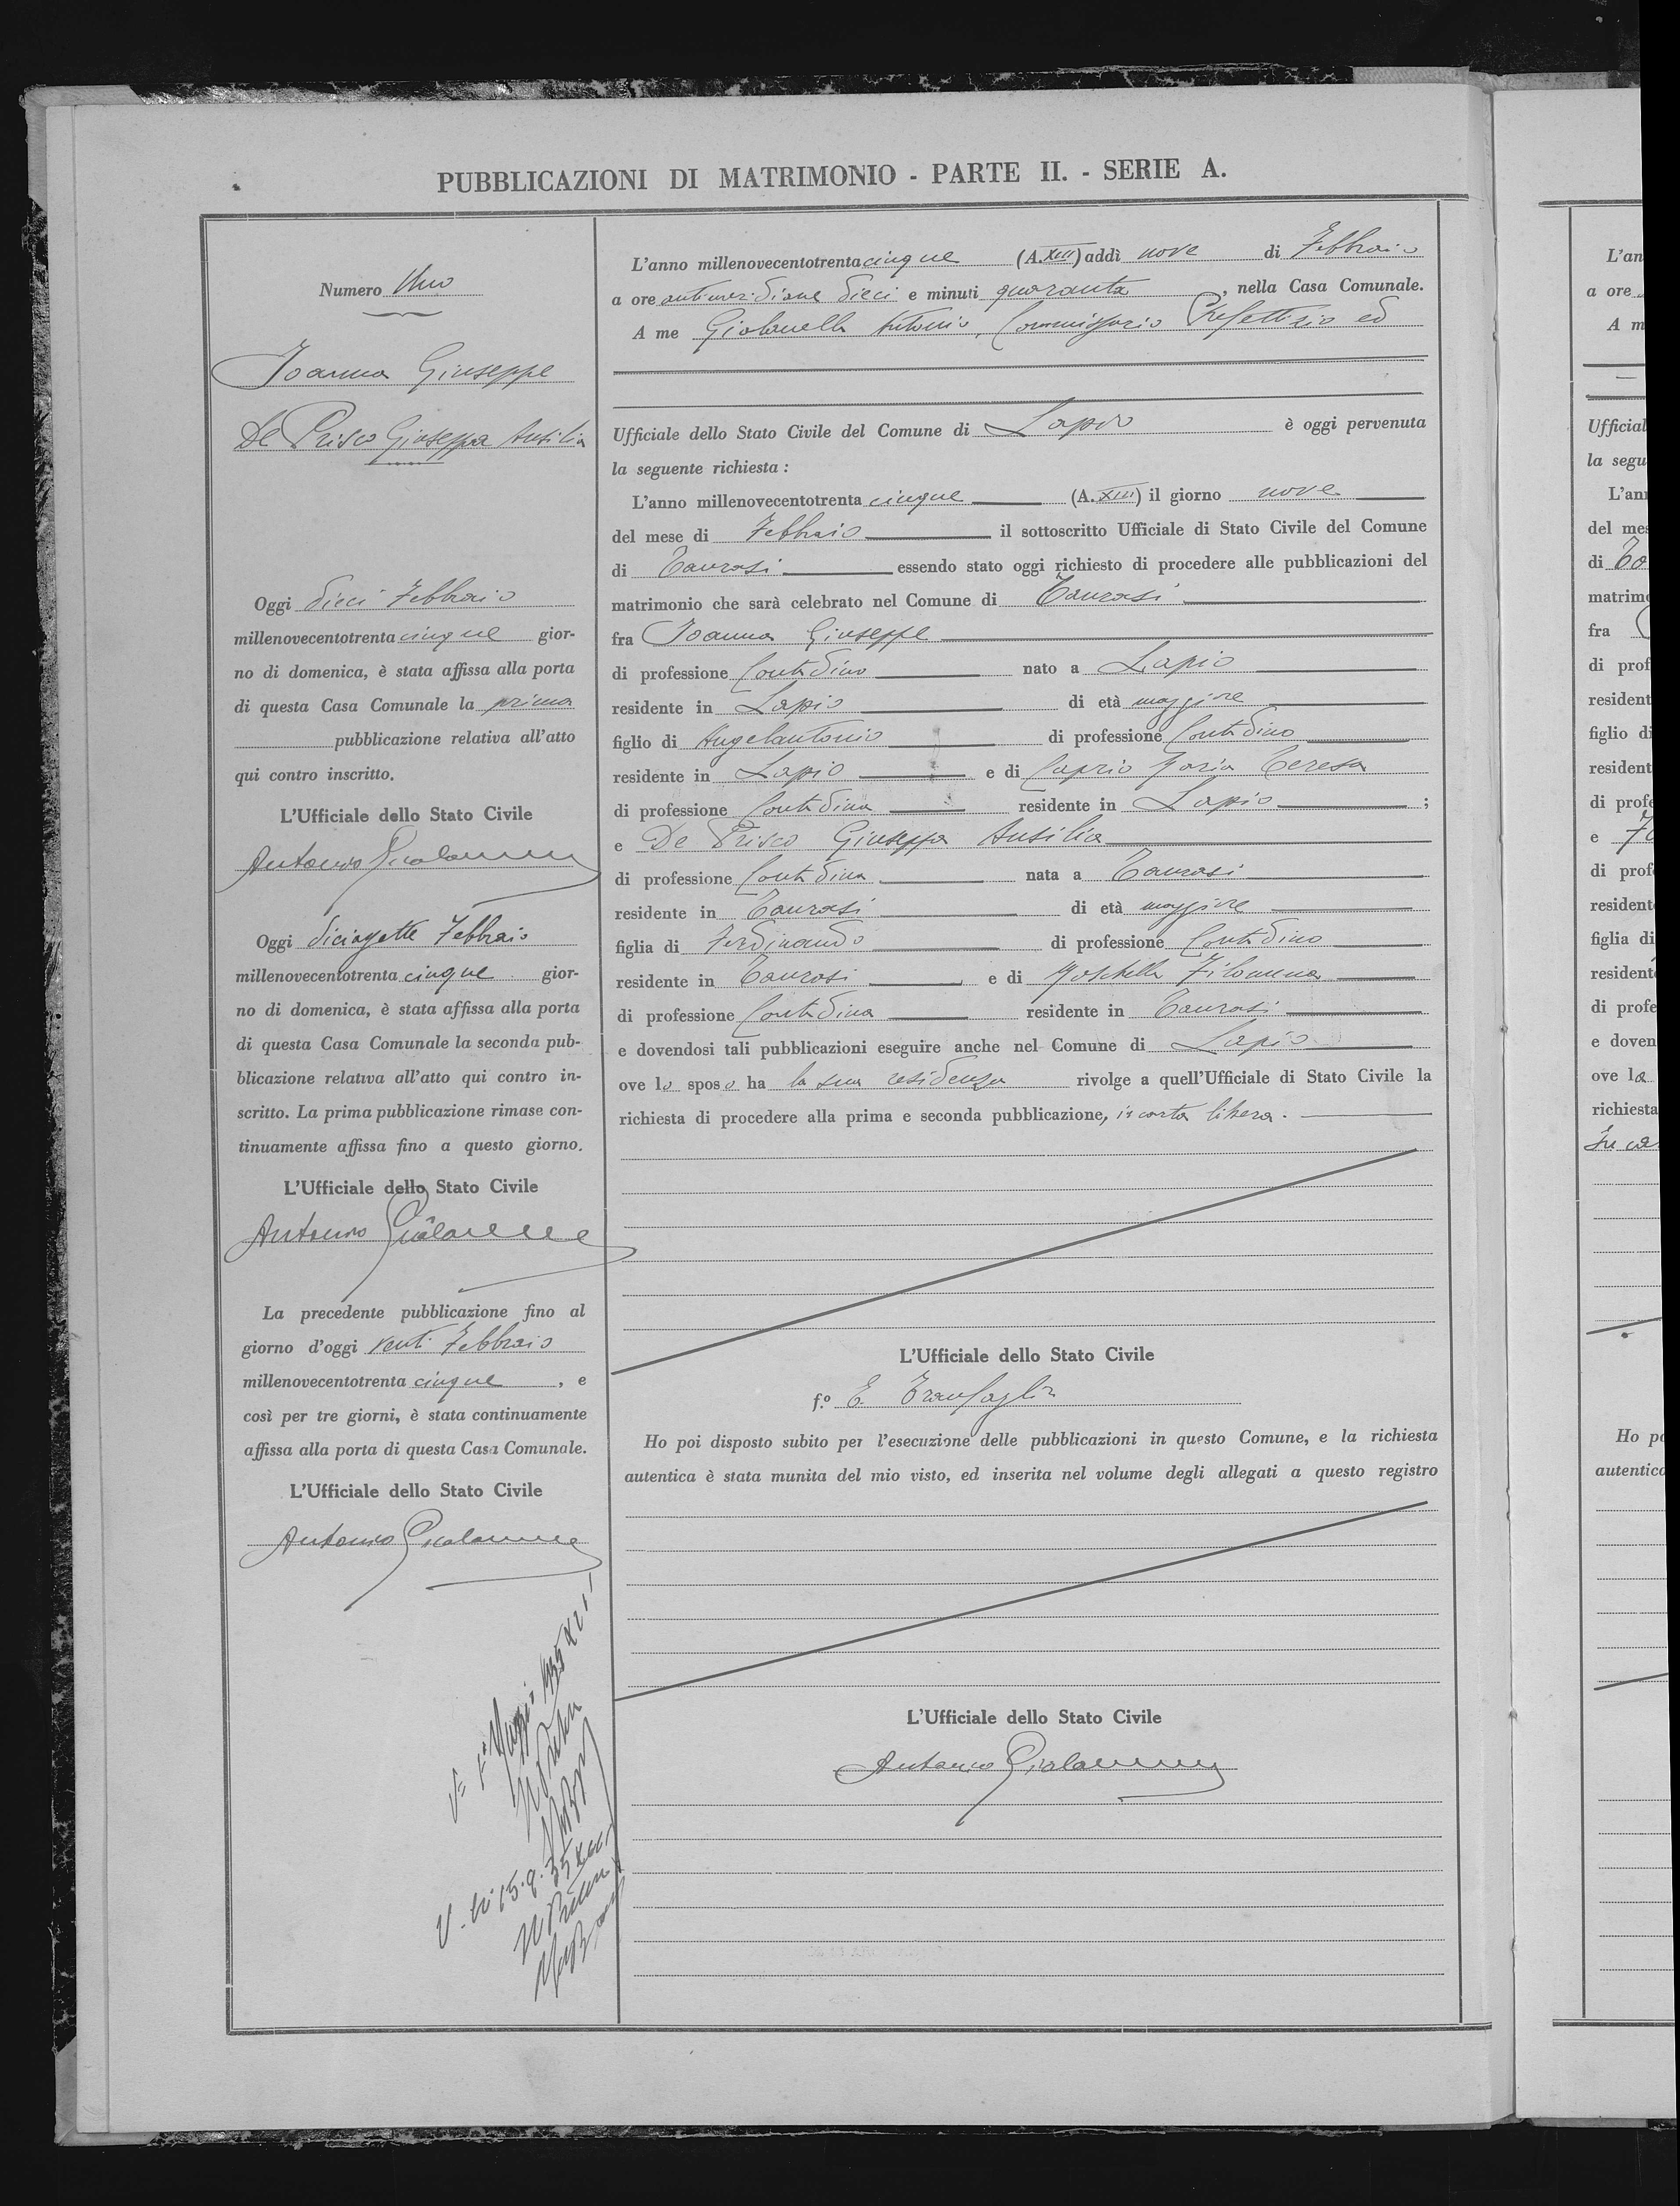 PUBBLICAZIONI DI MATRIMONIO - PARTE II. - SERIE A.
Numero Uno
Joanna Giuseppe
De Prisco Giuseppa Ausilia
Oggi dieci Febbraio
millenovecentotrenta cinque gior-
no di domenica, è stata affissa alla porta
di questa Casa Comunale la prima
pubblicazione relativa all'atto
qui contro inscritto.
L'Ufficiale dello Stato Civile
Antonio
Oggi diciassette Febbraio
millenovecentotrenta cinque gior-
no di domenica, è stata affissa alla porta
di questa Casa Comunale la seconda pub-
blicazione relativa all'atto qui contro in-
scritto. La prima pubblicazione rimase con-
tinuamente affissa fino a questo giorno.
L'Ufficiale dello Stato Civile
Antonio
La precedente pubblicazione fino al
giorno d'oggi venti Febbraio
millenovecentotrenta cinque, e
così per tre giorni, è stata continuamente
affissa alla porta di questa Casa Comunale.
L'Ufficiale dello Stato Civile
Antonio
L'anno millenovecentotrentacinque (A. XIII) addì nove di Febbraio
a ore antimeridiane dieci e minuti quaranta, nella Casa Comunale.
A me Antonio, Commissario Prefettizio ed
Ufficiale dello Stato Civile del Comune di Lapio è oggi pervenuta
la seguente richiesta :
L'anno millenovecentotrenta cinque (A. XIII) il giorno nove
del mese di Febbraio il sottoscritto Ufficiale di Stato Civile del Comune
di Taurasi essendo stato oggi richiesto di procedere alle pubblicazioni del
matrimonio che sarà celebrato nel Comune di Taurasi
fra Joanna Giuseppe
di professione Contadino nato a Lapio
residente in Lapio di età maggiore
figlio di Angelantonio di professione Contadino
residente in Lapio e di Caprio Maria Teresa
di professione Contadina residente in Lapio ;
e De Prisco Giuseppa Ausilia
di professione Contadina nata a Taurasi
residente in Taurasi di età maggiore
figlia di Ferdinando di professione Contadino
residente in Taurasi e di Moschella Filomena
di professione Contadina residente in Taurasi
e dovendosi tali pubblicazioni eseguire anche nel Comune di Lapio
ove lo sposo ha la sua residenza rivolge a quell'Ufficiale di Stato Civile la
richiesta di procedere alla prima e seconda pubblicazione, in carta libera.
L'Ufficiale dello Stato Civile
f.o E. Tranfaglia
Ho poi disposto subito per l'esecuzione delle pubblicazioni in questo Comune, e la richiesta
autentica è stata munita del mio visto, ed inserita nel volume degli allegati a questo registro
L'Ufficiale dello Stato Civile
Antonio
L'an
a ore
A m
Ufficial
la segu
L'an
del mes
di
matrimo
fra
di prof
resident
figlio di
resident
di profe
e
di prof
resident
figlia di
resident
di profe
e doven
ove la
richiesta
Ho po
autentica